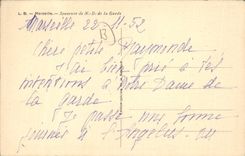 L. S. - Marseille. - Souvenir de N.-D. de la Garde
Marseille 22-11-52
Chère petite Raymonde,
J'ai bien prié à tes
intentions à Notre Dame de
la garde
Je passe une bonne
journée à l'Angelus.